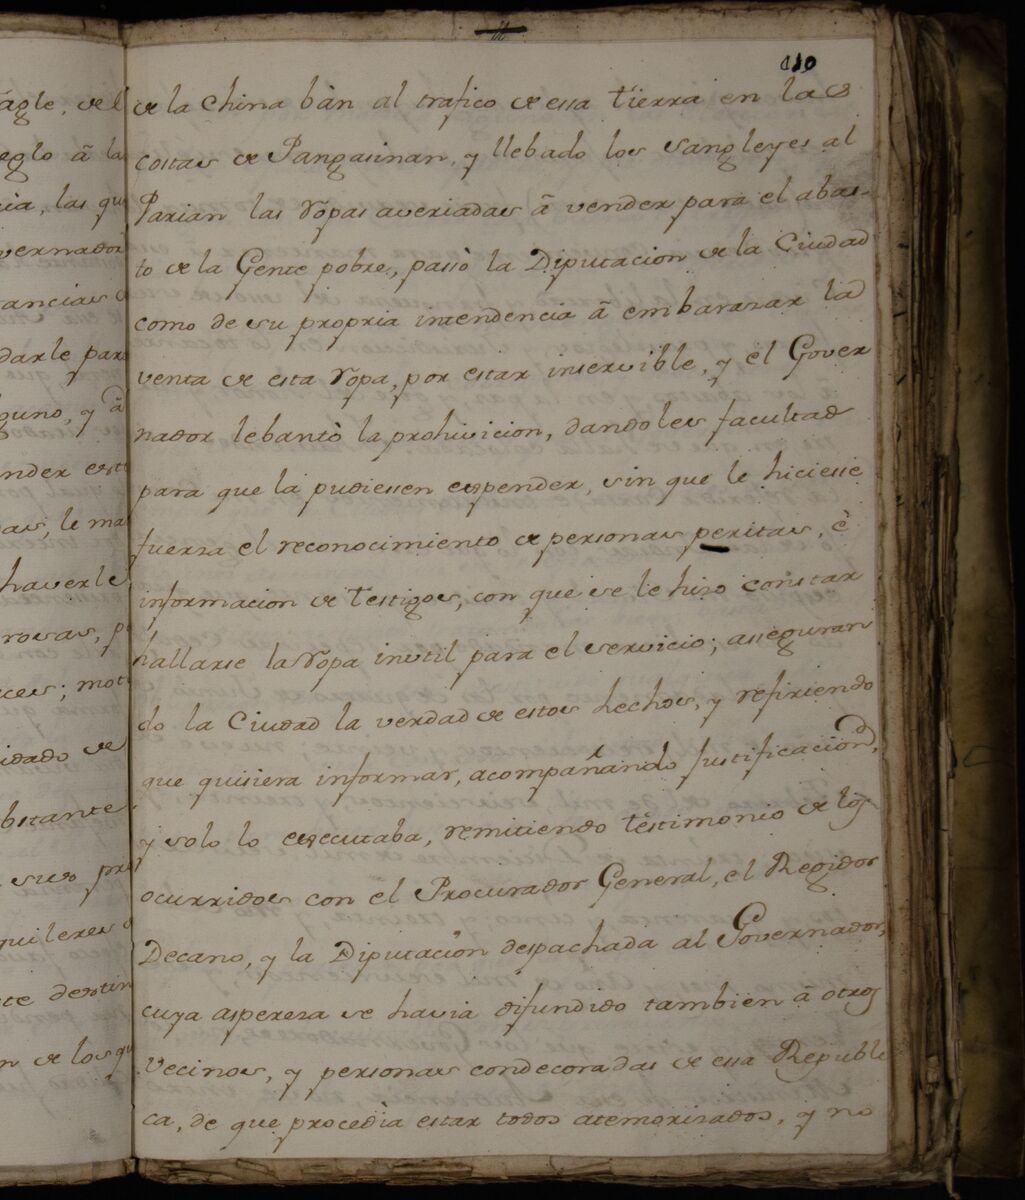 110
de la China bàn al trafico de essa tierra en las
costas de Pangasinan, y llebado los Sangleyes al
Parian las ropas averiadas â vender para el abas-
to de la Gente pobre, passò la Diputacion de la Ciudad
como de su propria intendencia â embarazar la
venta de esta ropa, por estar inservible, y el Gover
nador lebantò la prohivicion, dandoles facultad
para que la pudiessen expender, sin que le hiciesse
fuerza el reconocimiento de personas peritas, è
informacion de testigos, con que se le hizo constar
hallarse la ropa inutil para el servicio; asseguran
do la Ciudad la verdad de estos hechos, y refiriendo
que quisiera informar, acompañando justificacion,
y solo lo executaba, remitiendo testimonio de los
ocurridos con el Procurador General, el Regidor
Decano, y la Diputacion despachada al Governador,
cuya aspereza se havia difundido tambien â otros
Vecinos, y personas condecoradas de essa Republi
ca, de que procedia estar todos atemorizados, y no